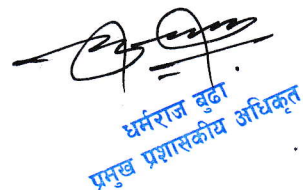 धर्मराज बुढा
प्रमुख प्रशासकीय अधिकृत